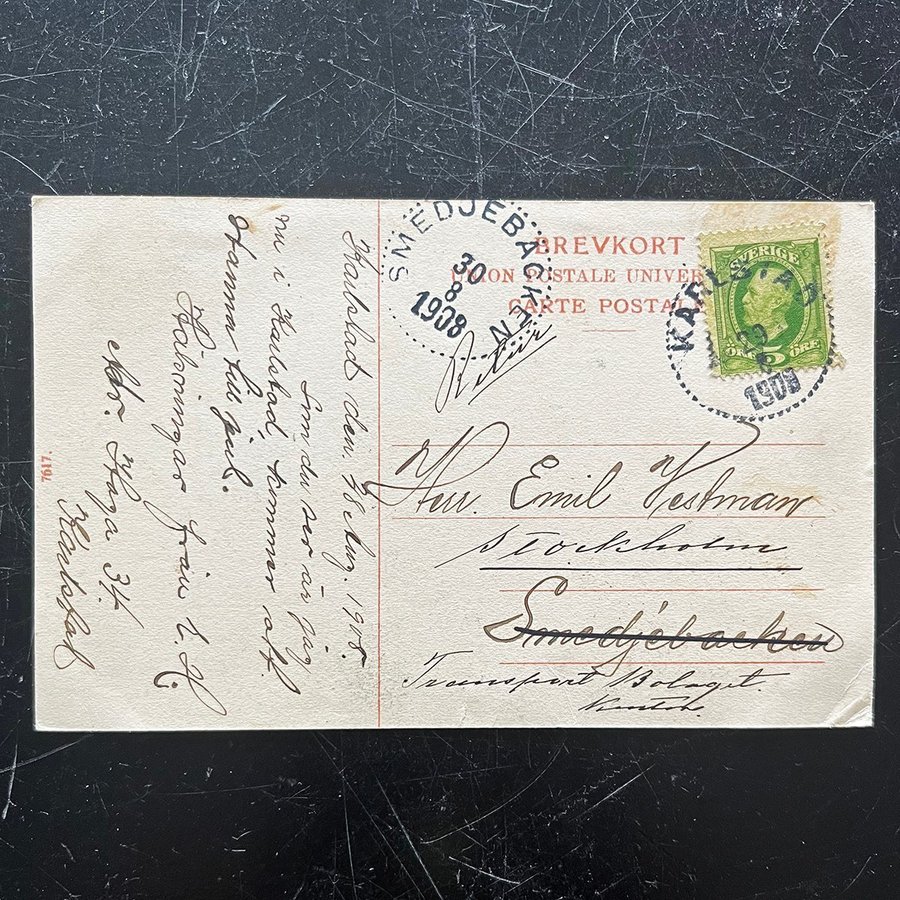 BREVKORT
UNION POSTALE UNIVER
CARTE POSTAL
SVERIGE
ÖRE 5 ÖRE
KARLSTAD
1908
SMEDJEBACKEN
30
8
1908
Retur
Herr. Emil Vestman
Stockholm
Smedjebacken
Transport Bolaget.
Karlstad den Aug. 1908.
Som du ser är jag
nu i Karlstad, kommer att
stanna till jul.
Hälsningar från E. H.
Adr. Haga 34.
Karlstad
7617.